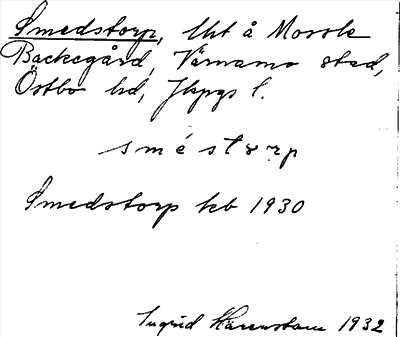 Smedstorp, lht å Mossle
Backegård, Värnamo stad,
Östbo hd, Jkpgs l.
smést𝑜rp
Smedstorp kb 1930
Ingrid Härenstam 1932